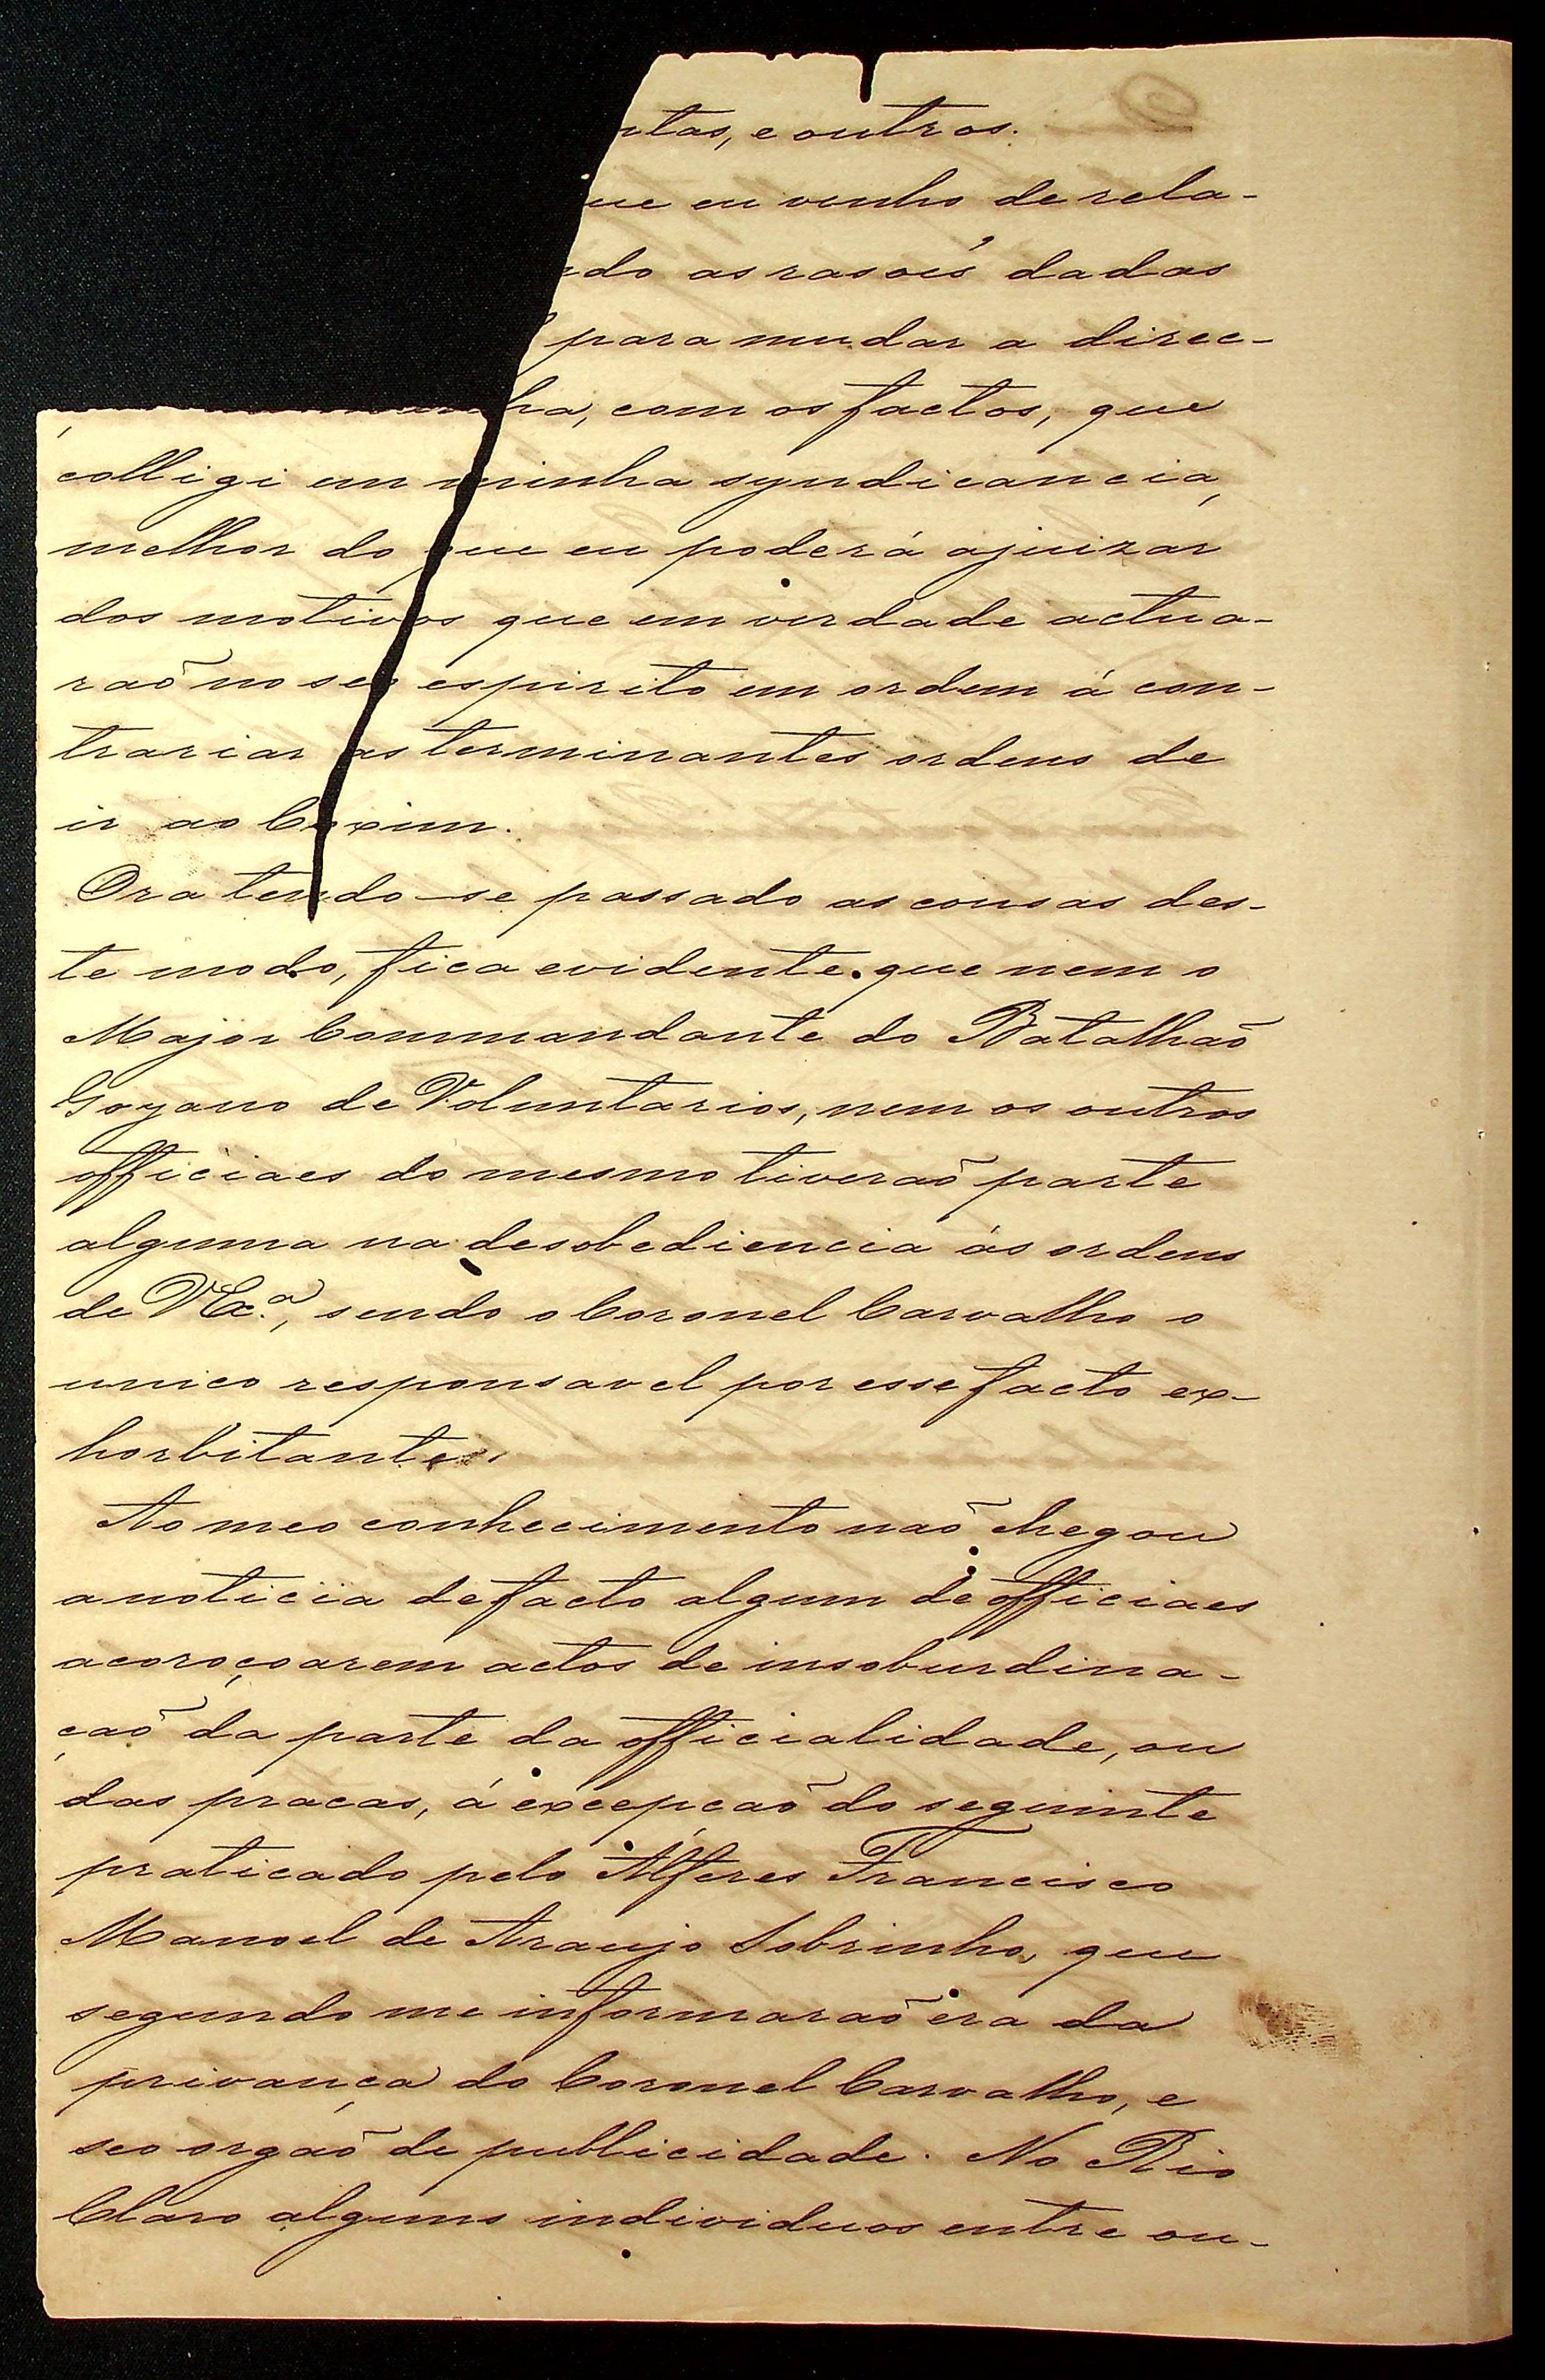 ntas, e outros.
ue eu venho de rela-
ndo as rasoẽs dadas
para mudar a direc-
ha, com os factos, que
colligi em minha syndicancia,
melhor do que eu poderá ajuizar
dos motivos que em verdade actua-
raõ no seo espirito em ordem á con-
trariar as terminantes ordens de
ir ao Coxim.
Ora tendo-se passado as cousas des-
te modo, fica evidente que nem o
Major Commandante do Batalhaõ
Goyano de Voluntarios, nem os outros
officiaes do mesmo tiveraõ parte
alguma na desobediencia ás ordens
de VEx.ª, sendo o Coronel Carvalho o
unico responsavel por esse facto ex-
horbitante.
Ao meo conhecimento naõ chegou
a noticia de facto algum de officiaes
acoroçoarem actos de insoburdina-
çaõ da parte da officialidade, ou
das pracas, á excepçaõ do seguinte
praticado pelo Alferes Francisco
Manoel de Araujo Sobrinho, que
segundo me informaraõ era da
privança do Coronel Carvalho, e
seo orgaõ de publicidade. No Rio
Claro alguns individuos entre ou-